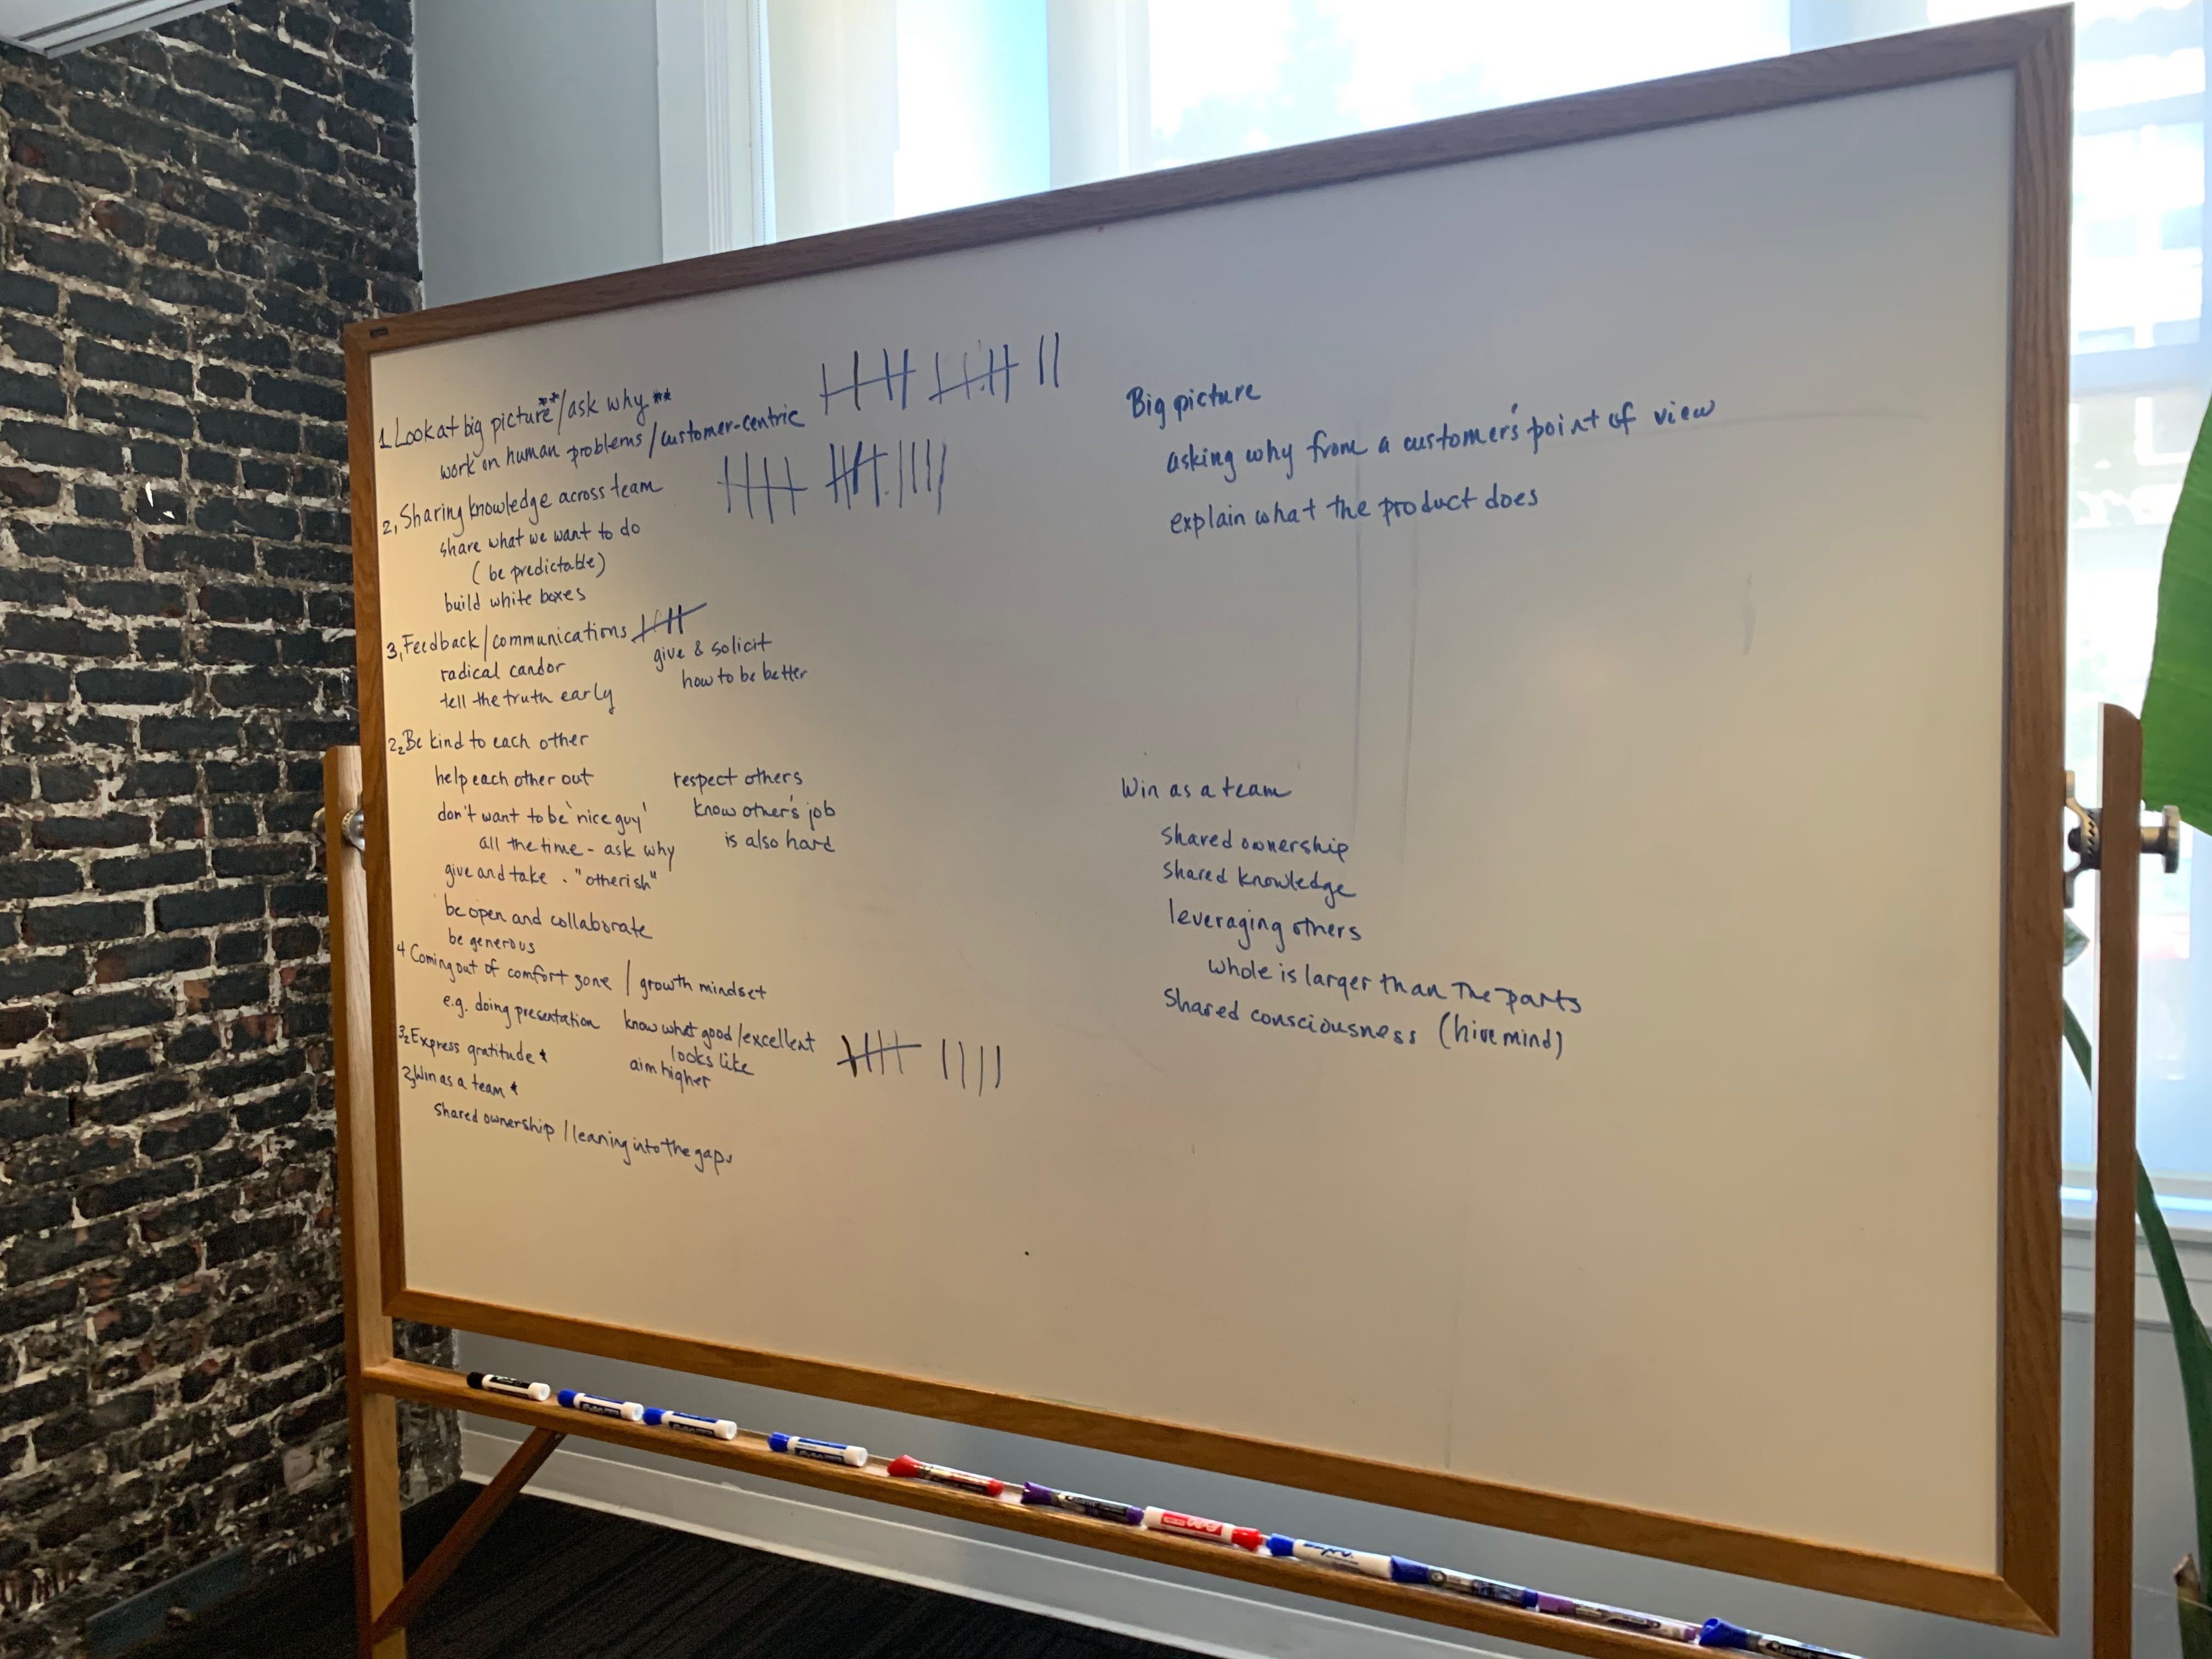 1. Look at big picture**/ask why**
work on human problems/customer-centric
2, Sharing knowledge across team
share what we want to do
(be predictable)
build white boxes
3, Feedback/communications
radical candor
tell the truth early
give & solicit
how to be better
2₂ Be kind to each other
help each other out
don't want to be 'nice guy'
all the time - ask why
give and take . "otherish"
be open and collaborate
be generous
respect others
know other's job
is also hard
4 Coming out of comfort zone / growth mindset
e.g. doing presentation
know what good/excellent
looks like
aim higher
3₂ Express gratitude *
2₃ Win as a team *
Shared ownership / leaning into the gaps
Big picture
asking why from a customer's point of view
explain what the product does
Win as a team
shared ownership
shared knowledge
leveraging others
whole is larger than the parts
Shared consciousness (hive mind)